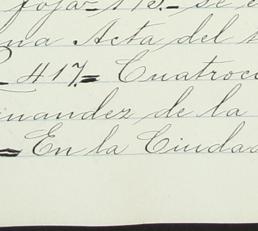 foja 113.= se e
na Acta del
417.= Cuatroci
nandez de la
= En la Ciudad